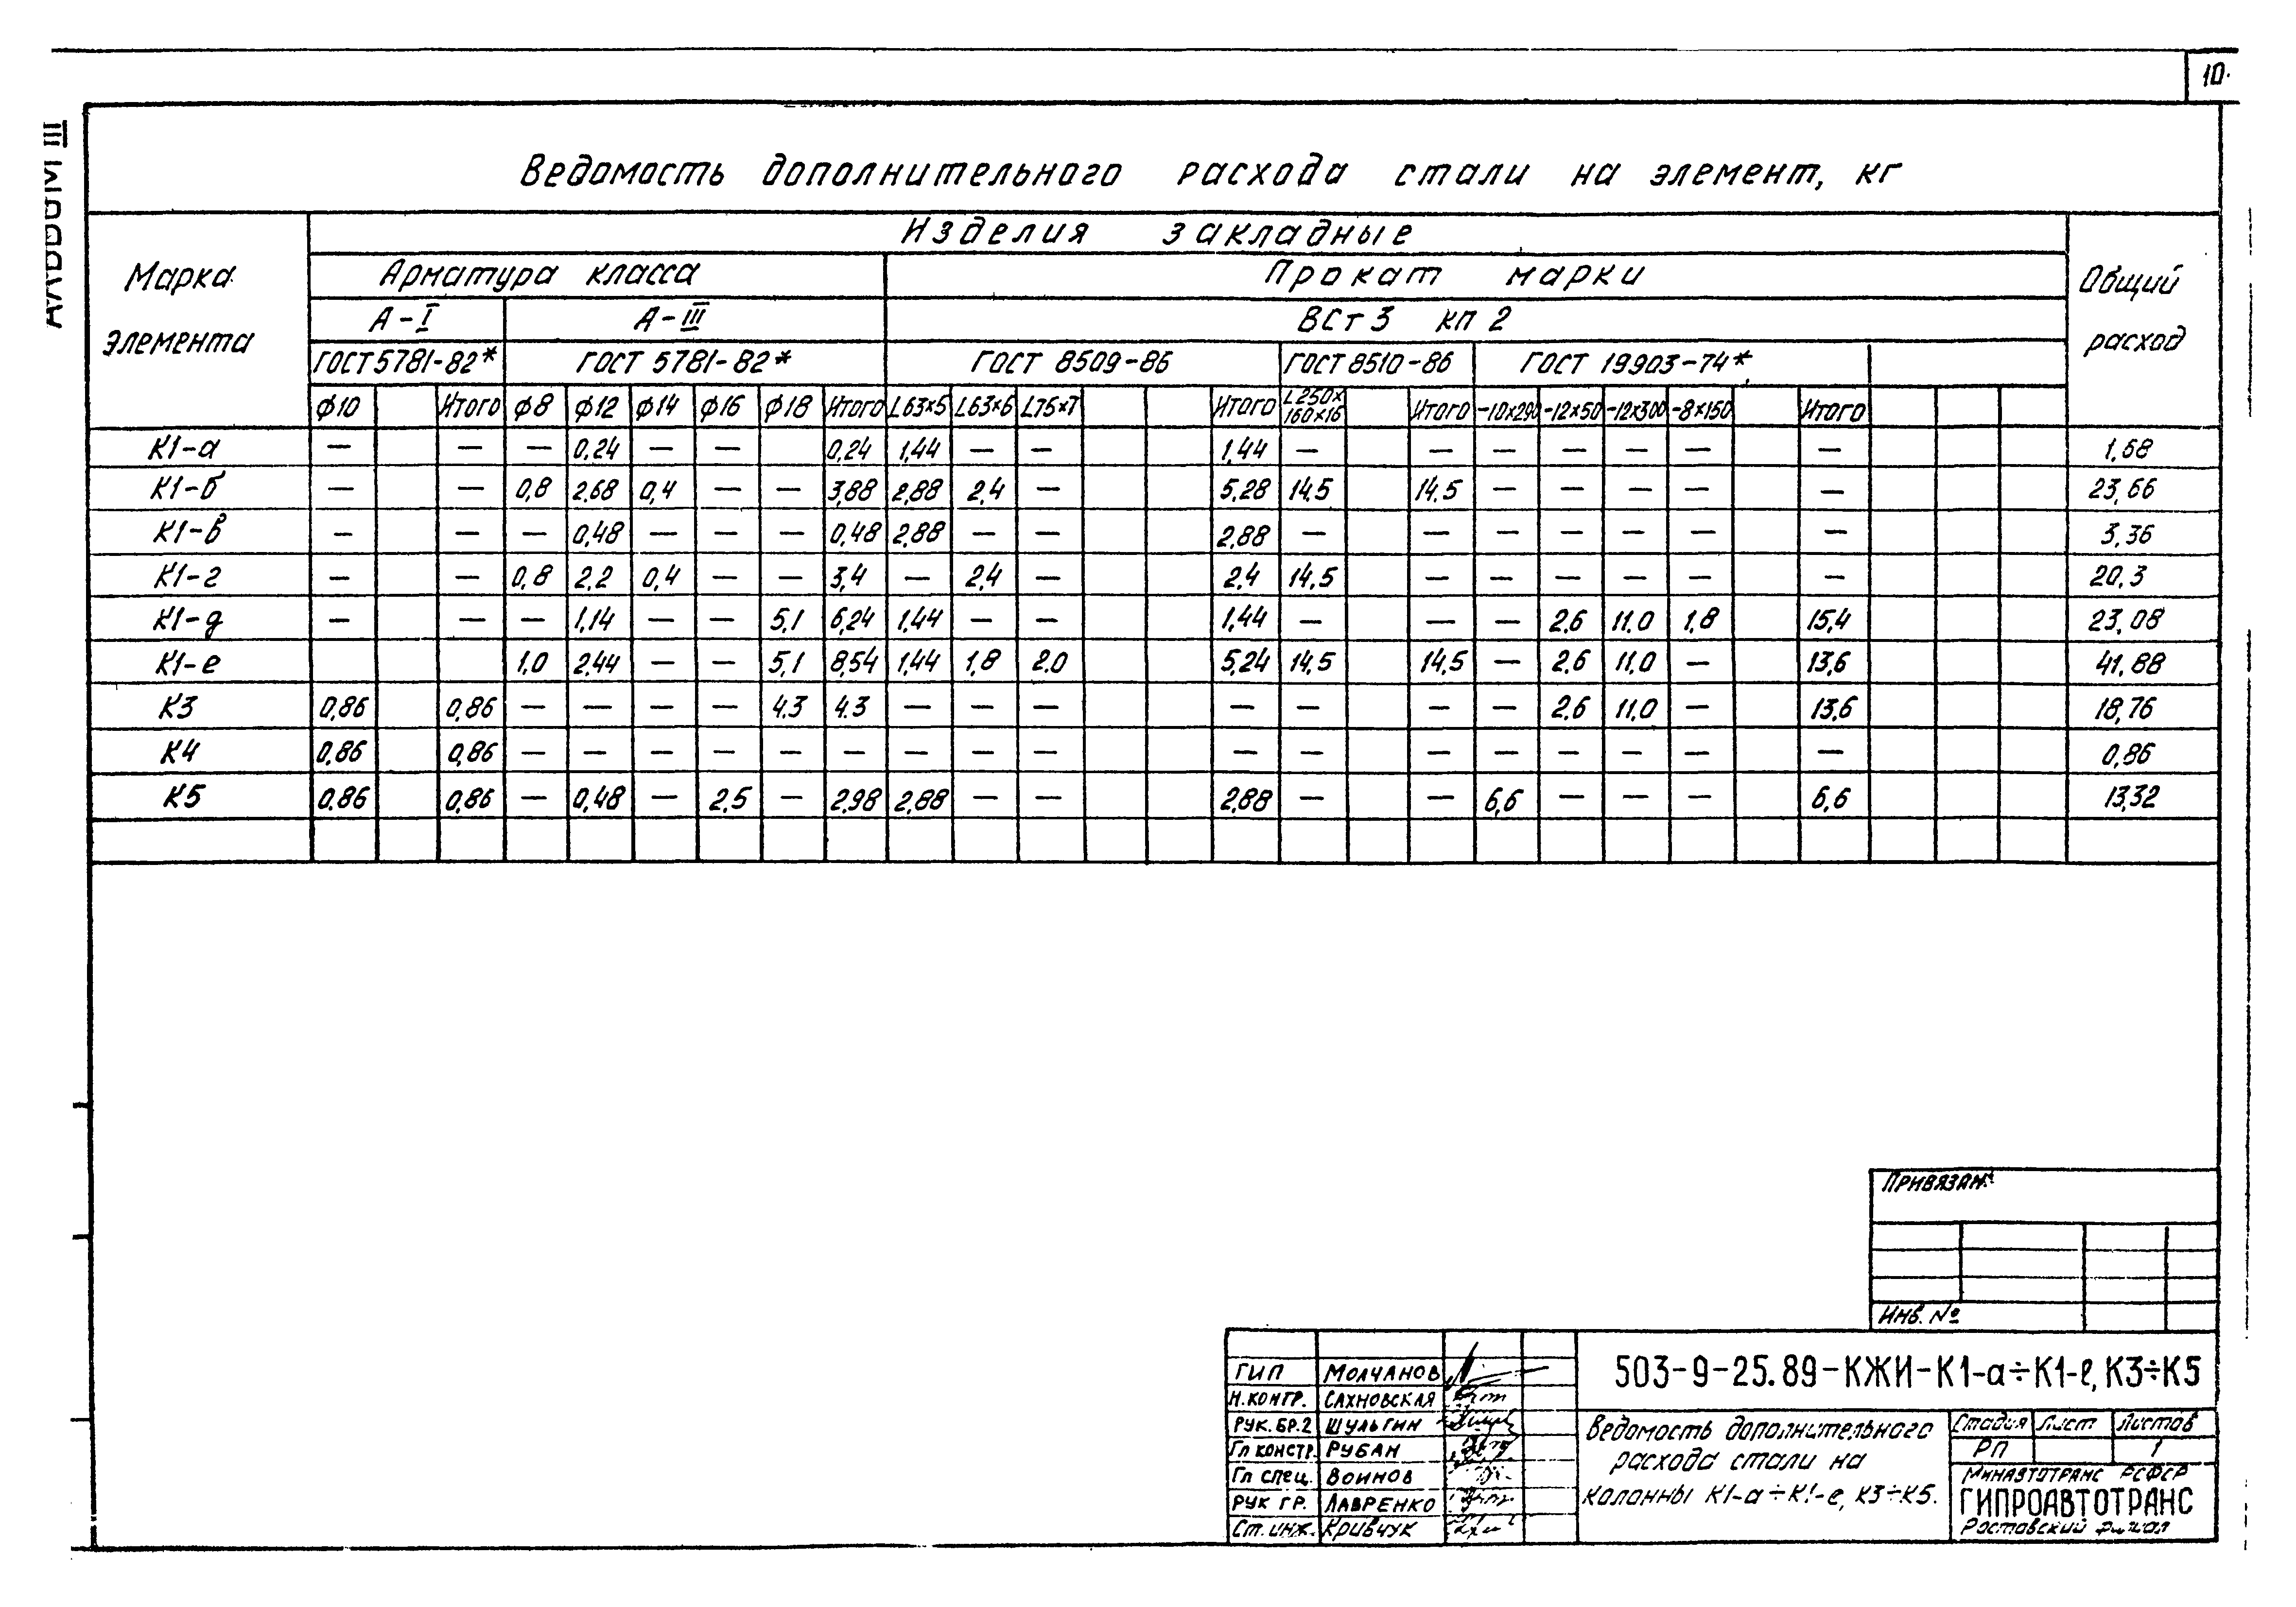 10
Альбом III
Ведомость дополнительного расхода стали на элемент, кг
Марка элемента
Изделия закладные
Общий расход
Арматура класса
Прокат марки
А-I
А-III
ВСт3 кп 2
ГОСТ 5781-82*
ГОСТ 5781-82*
ГОСТ 8509-86
ГОСТ 8510-86
ГОСТ 19903-74*
ф10 Итого ф8 ф12 ф14 ф16 ф18 Итого L63×5 L63×6 L75×7 Итого L250×160×16 Итого -10×290 -12×50 -12×300 -8×150 Итого
К1-а — — — 0,24 — — 0,24 1,44 — — 1,44 — — — — — — — 1,68
К1-б — — 0,8 2,68 0,4 — — 3,88 2,88 2,4 — 5,28 14,5 14,5 — — — — — 23,66
К1-в — — — 0,48 — — — 0,48 2,88 — — 2,88 — — — — — — — 3,36
К1-г — — 0,8 2,2 0,4 — — 3,4 — 2,4 — 2,4 14,5 — — — — — — 20,3
К1-д — — — 1,14 — — 5,1 6,24 1,44 — — 1,44 — — — 2,6 11,0 1,8 15,4 23,08
К1-е 1,0 2,44 — — 5,1 8,54 1,44 1,8 2,0 5,24 14,5 14,5 — 2,6 11,0 — 13,6 41,88
К3 0,86 0,86 — — — — 4,3 4,3 — — — — — — — 2,6 11,0 — 13,6 18,76
К4 0,86 0,86 — — — — — — — — — — — — — — — — — 0,86
К5 0,86 0,86 — 0,48 — 2,5 — 2,98 2,88 — — 2,88 — — 6,6 — — — 6,6 13,32
Привязан:
Инв. №
ГИП Молчанов
Н.контр. Сахновская
Рук. бр.2 Шульгин
Гл констр. Рубан
Гл спец. Воинов
Рук гр. Лавренко
Ст. инж. Кривчук
503-9-25.89-КЖИ-К1-а÷К1-е, К3÷К5
Ведомость дополнительного
расхода стали на
колонны К1-а÷К1-е, К3÷К5.
Стадия Лист Листов
РП 1
Минавтотранс РСФСР
ГИПРОАВТОТРАНС
Ростовский филиал